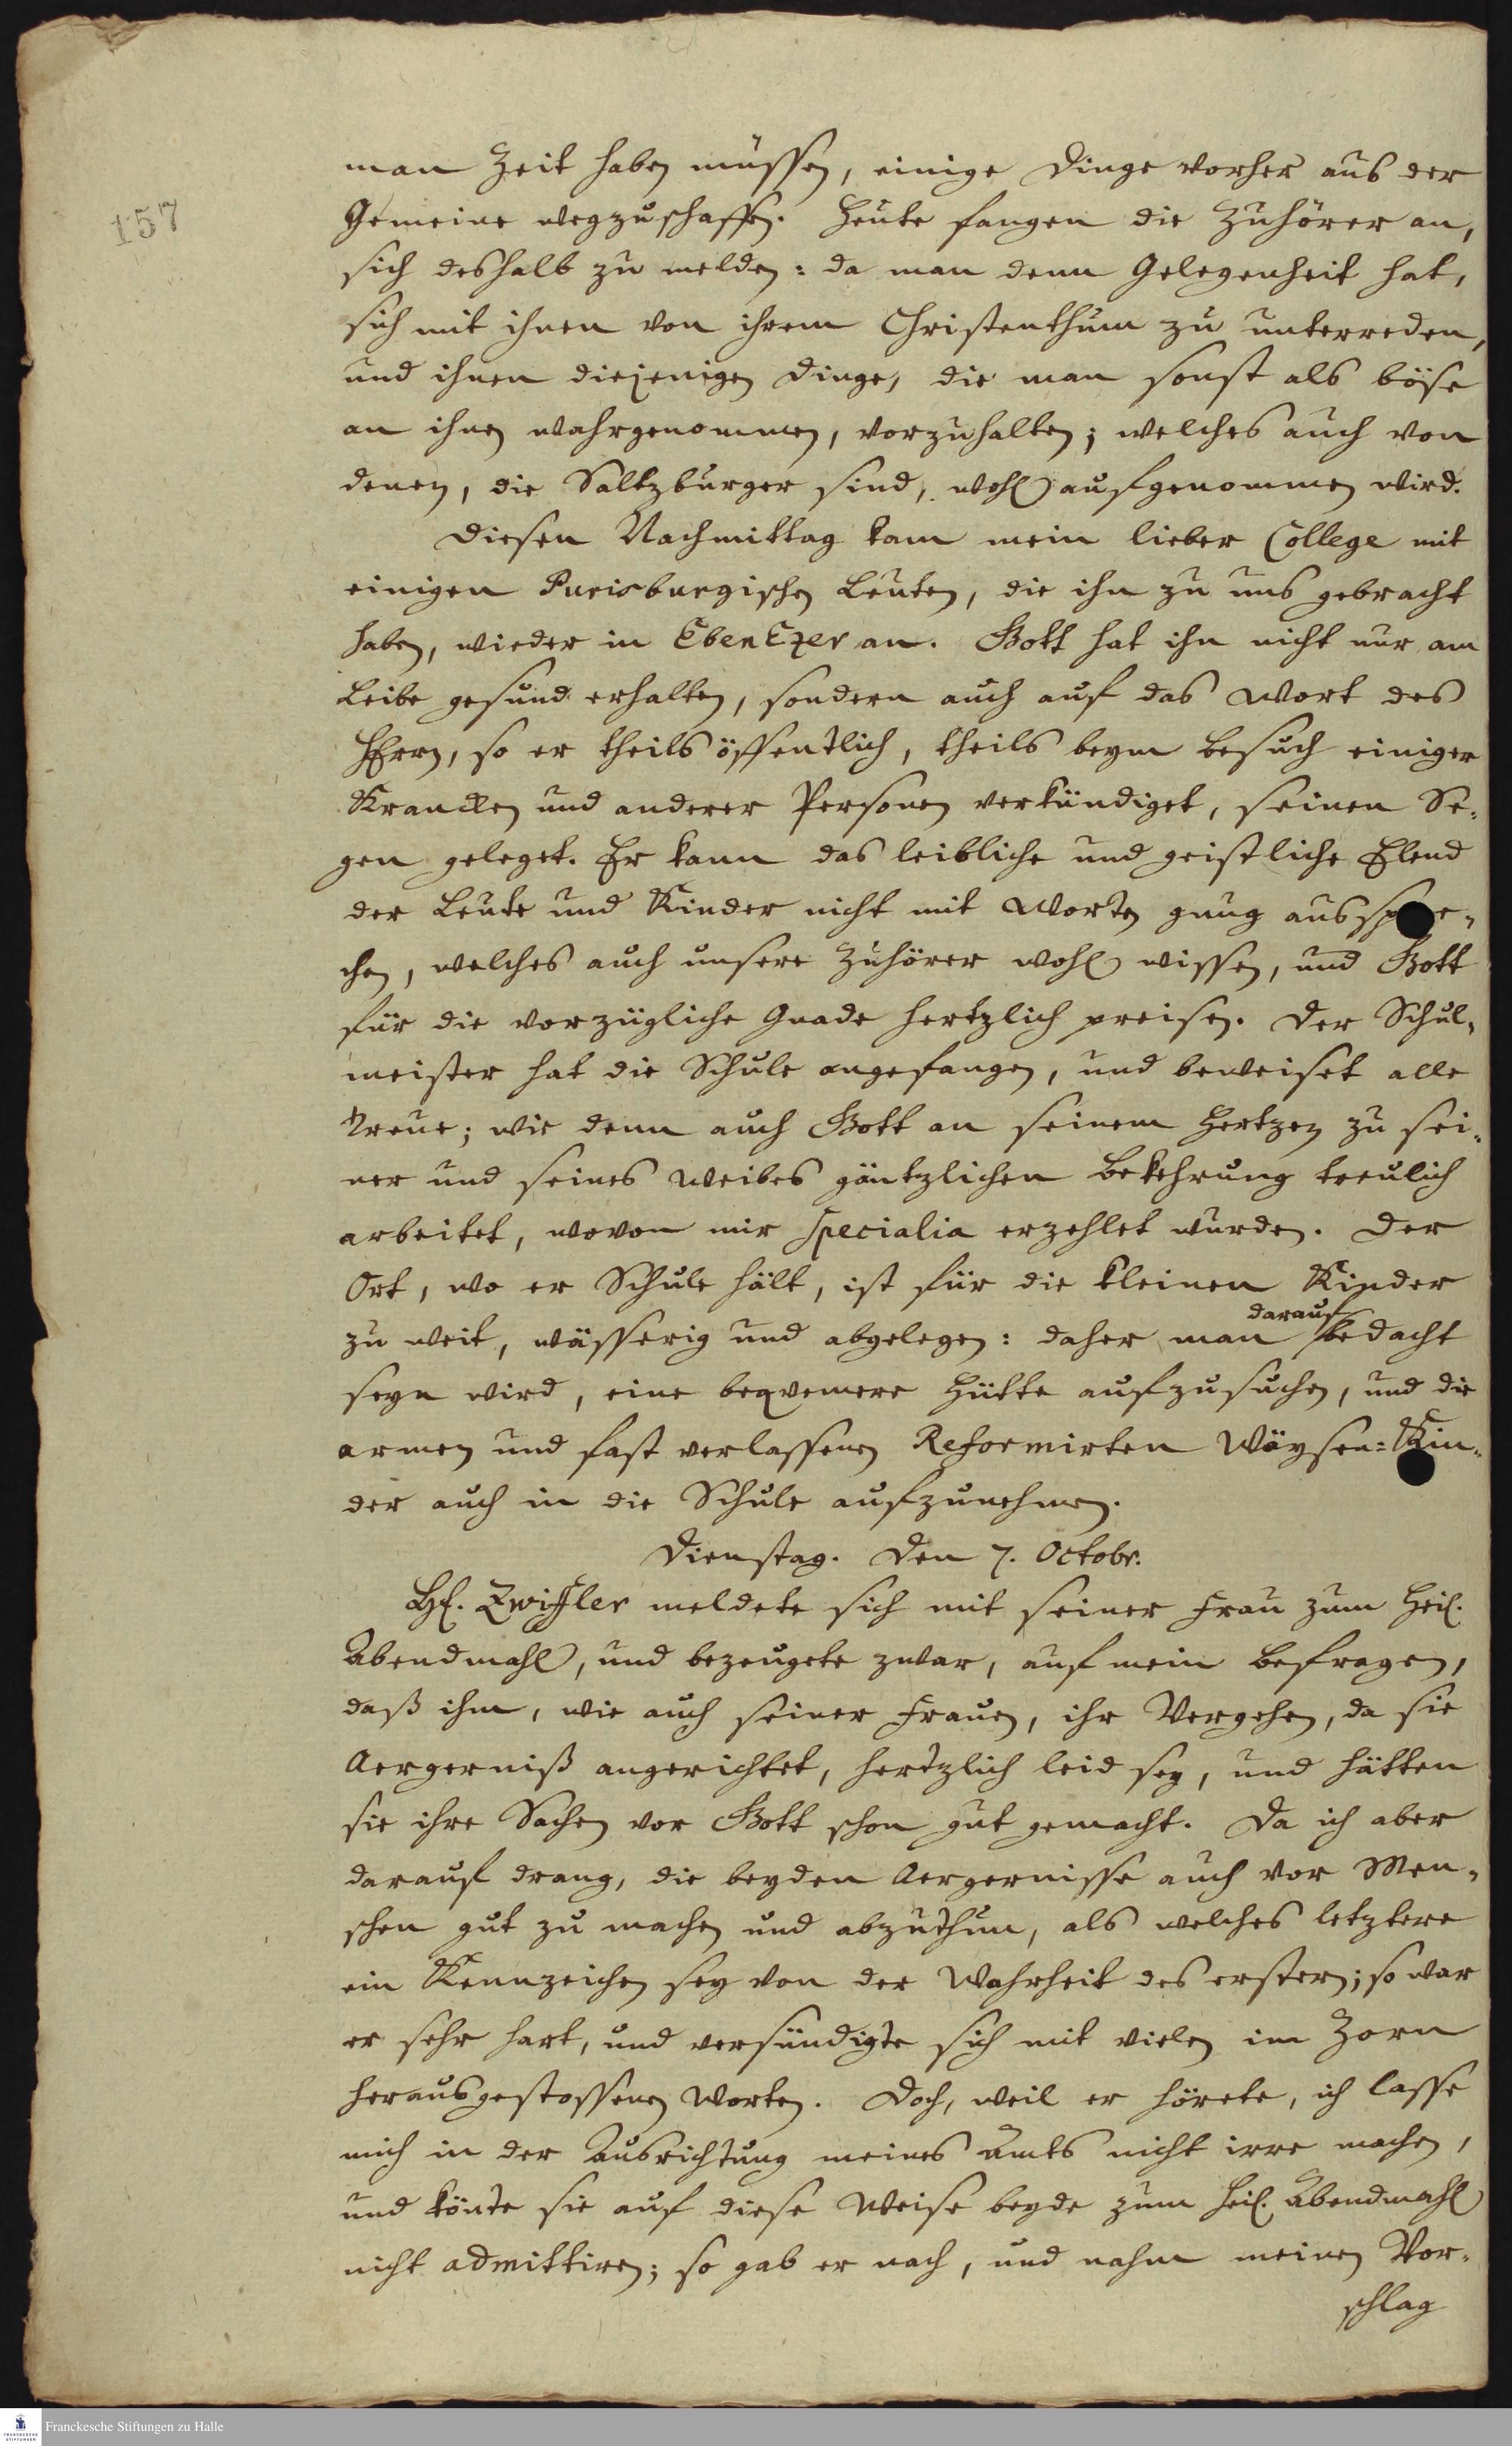 157
man Zeit haben müssen, einige Dinge vorher aus der
Gemeine wegzuschaffen. Heute fangen die Zuhörer an,
sich deshalb zu melden: da man denn Gelegenheit hat,
sich mit ihnen von ihrem Christenthum zu unterreden,
und ihnen diejenigen Dinge, die man sonst als böse
an ihnen wahrgenommen, vorzuhalten; welches auch von
denen, die Saltzburger sind, wohl aufgenommen wird.
Diesen Nachmittag kam mein lieber College mit
einigen Purisburgischen Leuten, die ihn zu uns gebracht
haben, wieder in EbenEzer an. Gott hat ihn nicht nur am
Leibe gesund erhalten, sondern auch auf das Wort des
HErrn, so er theils öffentlich, theils beym Besuch einiger
Krancken und anderer Personen verkündiget, seinen Se-
gen geleget. Er kann das leibliche und geistliche Elend
der Leute und Kinder nicht mit Worten gnug ausspre-
chen, welches auch unsere Zuhörer wohl wissen, und Gott
für die vorzügliche Gnade hertzlich preisen. Der Schul-
meister hat die Schule angefangen, und beweiset alle
Treue; wie denn auch Gott an seinem Hertzen zu sei-
ner und seines Weibes gäntzlichen Bekehrung treulich
arbeitet, wovon mir specialia erzehlet wurden. Der
Ort, wo er Schule hält, ist für die kleinen Kinder
zu weit, wässerig und abgelegen: daher man darauf bedacht
seyn wird, eine beqvemere Hütte aufzusuchen, und die
armen und fast verlassenen Reformirten Wäysen-Kin-
der auch in die Schule aufzunehmen.
Dienstag. Den 7. Octobr.
H. Zwifler meldete sich mit seiner Frau zum Heil.
Abendmahl, und bezeugete zwar, auf mein Befragen,
daß ihm, wie auch seiner Frauen, ihr Vergehen, da sie
Aergerniß angerichtet, hertzlich leid sey, und hätten
sie ihre Sachen vor Gott schon gut gemacht. Da ich aber
darauf drang, die beyden Aergernisse auch vor Men-
schen gut zu machen und abzuthun, als welches letztere
ein Kennzeichen sey von der Wahrheit des erstern; so war
er sehr hart, und versündigte sich mit vielen im Zorn
herausgestossenen Worten. Doch, weil er hörete, ich lasse
mich in der Ausrichtung meines Amts nicht irre machen,
und könte sie auf diese Weise beyde zum Heil. Abendmahl
nicht admittiren; so gab er nach, und nahm meinen Vor-
schlag
FRANCKESCHE STIFTUNGEN
Franckesche Stiftungen zu Halle